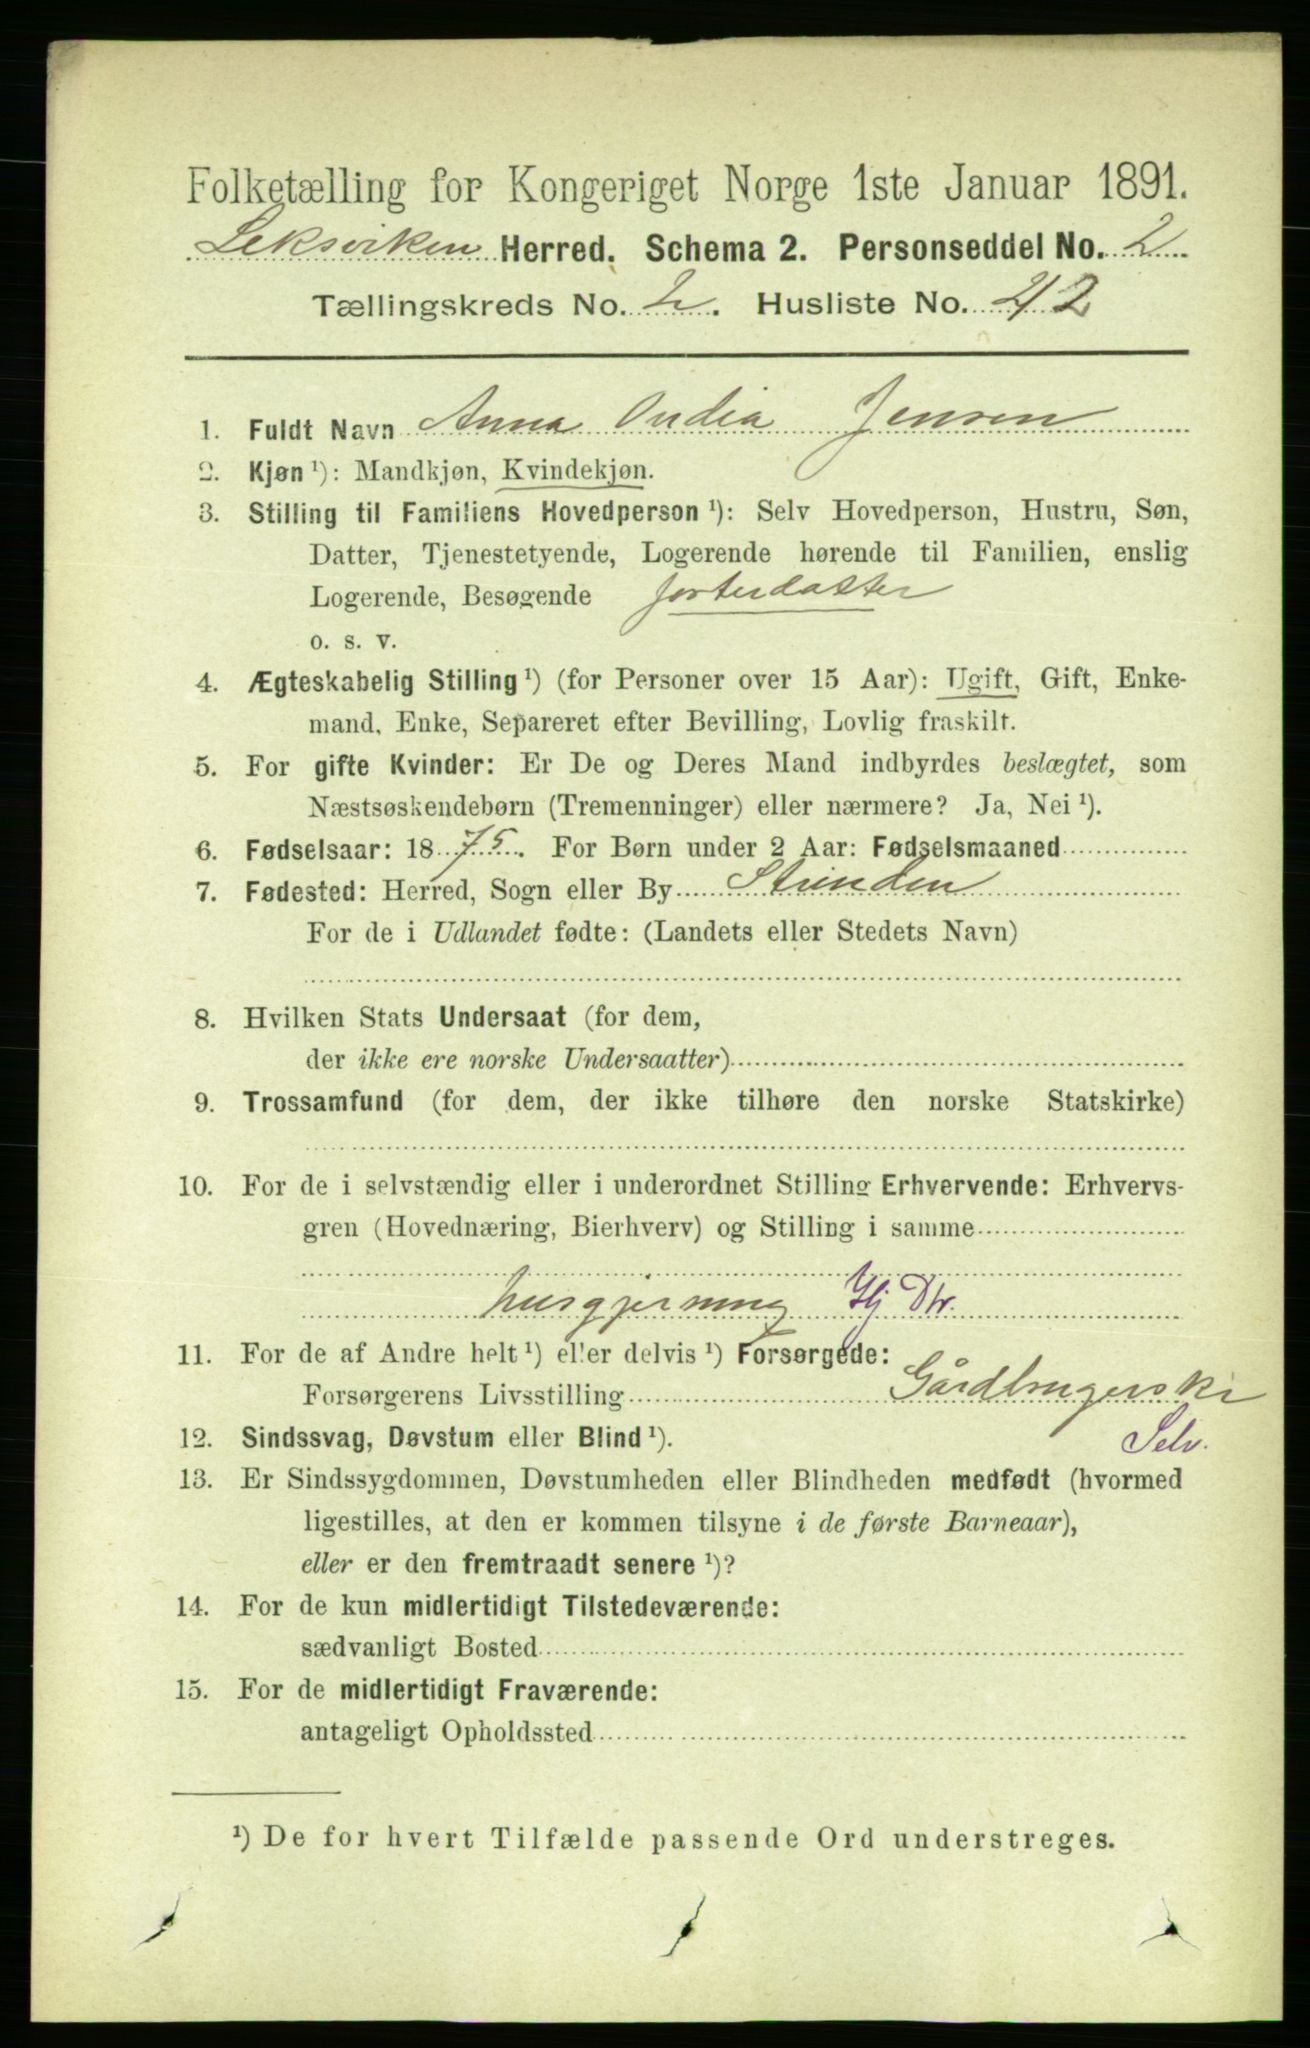 Folketælling for Kongeriget Norge 1ste Januar 1891.
Leksviken Herred. Schema 2. Personseddel No. 2
Tællingskreds No. 2. Husliste No. 42
1. Fuldt Navn Anna Ondia Jensen
2. Kjøn ¹): Mandkjøn, Kvindekjøn.
3. Stilling til Familiens Hovedperson ¹): Selv Hovedperson, Hustru, Søn,
Datter, Tjenestetyende, Logerende hørende til Familien, enslig
Logerende, Besøgende fosterdatter
o. s. v.
4. Ægteskabelig Stilling ¹) (for Personer over 15 Aar): Ugift, Gift, Enke-
mand, Enke, Separeret efter Bevilling, Lovlig fraskilt.
5. For gifte Kvinder: Er De og Deres Mand indbyrdes beslægtet, som
Næstsøskendebørn (Tremenninger) eller nærmere? Ja, Nei ¹).
6. Fødselsaar: 1875. For Børn under 2 Aar: Fødselsmaaned
7. Fødested: Herred, Sogn eller By Strinden
For de i Udlandet fødte: (Landets eller Stedets Navn)
8. Hvilken Stats Undersaat (for dem,
der ikke ere norske Undersaatter)
9. Trossamfund (for dem, der ikke tilhøre den norske Statskirke)
10. For de i selvstændig eller i underordnet Stilling Erhvervende: Erhvervs-
gren (Hovednæring, Bierhverv) og Stilling i samme
husgjerning Hj Dtr.
11. For de af Andre helt ¹) eller delvis ¹) Forsørgede:
Forsørgerens Livsstilling Gårdbrugerske
Selv.
12. Sindssvag, Døvstum eller Blind ¹).
13. Er Sindssygdommen, Døvstumheden eller Blindheden medfødt (hvormed
ligestilles, at den er kommen tilsyne i de første Barneaar),
eller er den fremtraadt senere ¹)?
14. For de kun midlertidigt Tilstedeværende:
sædvanligt Bosted
15. For de midlertidigt Fraværende:
antageligt Opholdssted
¹) De for hvert Tilfælde passende Ord understreges.